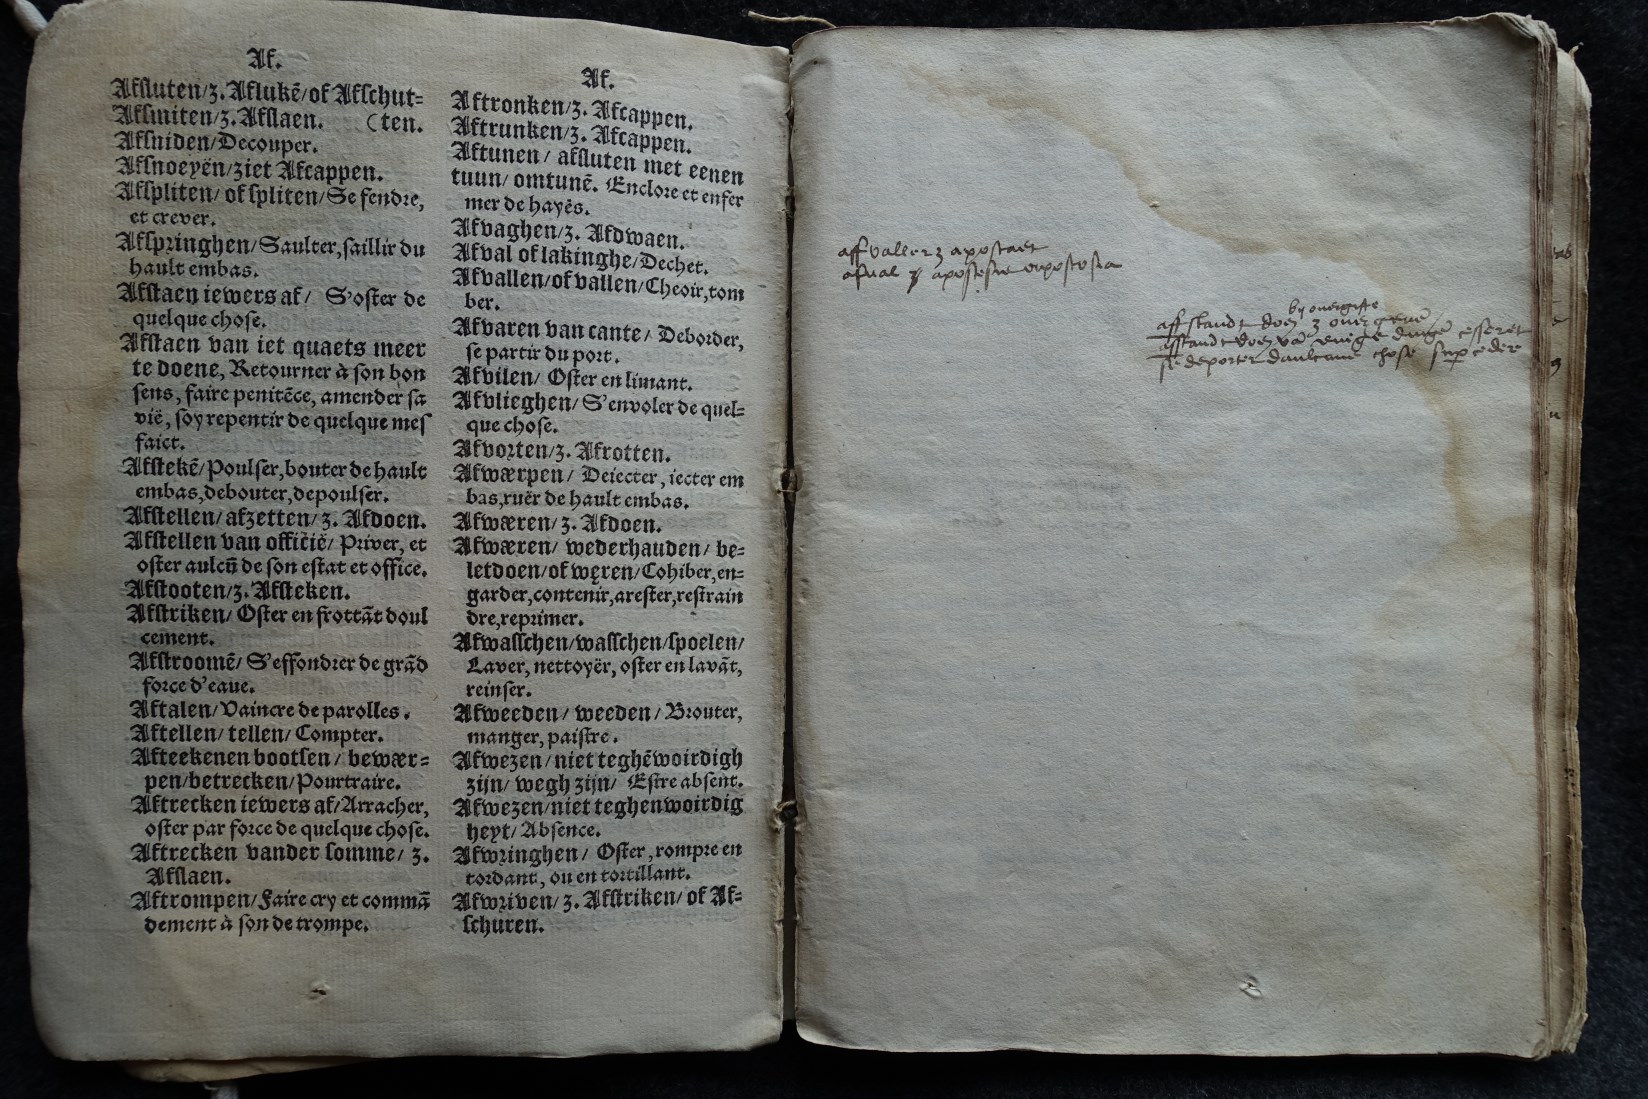 Af.
Afsluten/z. Aflukē/of Afschut⸗
Afsmiten/z. Afslaen. (ten.
Afsniden/Decouper.
Afsnoeyēn/ziet Afcappen.
Afspliten/ of spliten/Se fendre,
et crever.
Afspringhen/Saulter,saillir du
hault embas.
Afstaen iewers af/ S'oster de
quelque chose.
Afstaen van iet quaets meer
te doene, Retourner à son bon
sens, faire penitēce, amender sa
vië, soy repentir de quelque mes
faict.
Afstekē/Poulser,bouter de hault
embas,debouter,depoulser.
Afstellen/afzetten/z. Afdoen.
Afstellen van officië/ Priver, et
oster aulcū de son estat et office.
Afstooten/z. Afsteken.
Afstriken/ Oster en frottāt doul
cement.
Afstroomē/ S'effondrer de grād
force d'eaue.
Aftalen/Vaincre de parolles.
Aftellen/tellen/Compter.
Afteekenen bootsen/ bewær⸗
pen/betrecken/Pourtraire.
Aftrecken iewers af/Arracher,
oster par force de quelque chose.
Aftrecken vander somme/ z.
Afslaen.
Aftrompen/Faire cry et commā
dement à son de trompe.
Af.
Aftronken/z. Afcappen.
Aftrunken/z. Afcappen.
Aftunen/ afsluten met eenen
tuun/ omtunē. Enclore et enfer
mer de hayës.
Afvaghen/z. Afdwaen.
Afval of lakinghe/Dechet.
Afvallen/of vallen/Cheoir,tom
ber.
Afvaren van cante/ Deborder,
se partir du port.
Afvilen/ Oster en limant.
Afvlieghen/ S'envoler de quel⸗
que chose.
Afvorten/z. Afrotten.
Afwærpen/ Deiecter, iecter em
bas,ruër de hault embas.
Afwæren/z. Afdoen.
Afwæren/ wederhauden/ be⸗
letdoen/of węren/Cohiber,en⸗
garder,contenir,arester,restrain
dre,reprimer.
Afwasschen/wasschen/spoelen/
Laver, nettoyër, oster en lavāt,
reinser.
Afweeden/ weeden/ Brouter,
manger, paistre.
Afwezen/ niet teghēwoirdigh
zijn/ wegh zijn/ Estre absent.
Afwezen/niet teghenwoirdig
heyt/ Absence.
Afwringhen/ Oster, rompre en
tordant, ou en tortillant.
Afwriven/z. Afstriken/ of Af⸗
schuren.
affvaller z apostaet
afual
by ouergifte
affstandt doen z ouergeuē
affstandt doen vā eenige dingē
se deporter daulcune chose